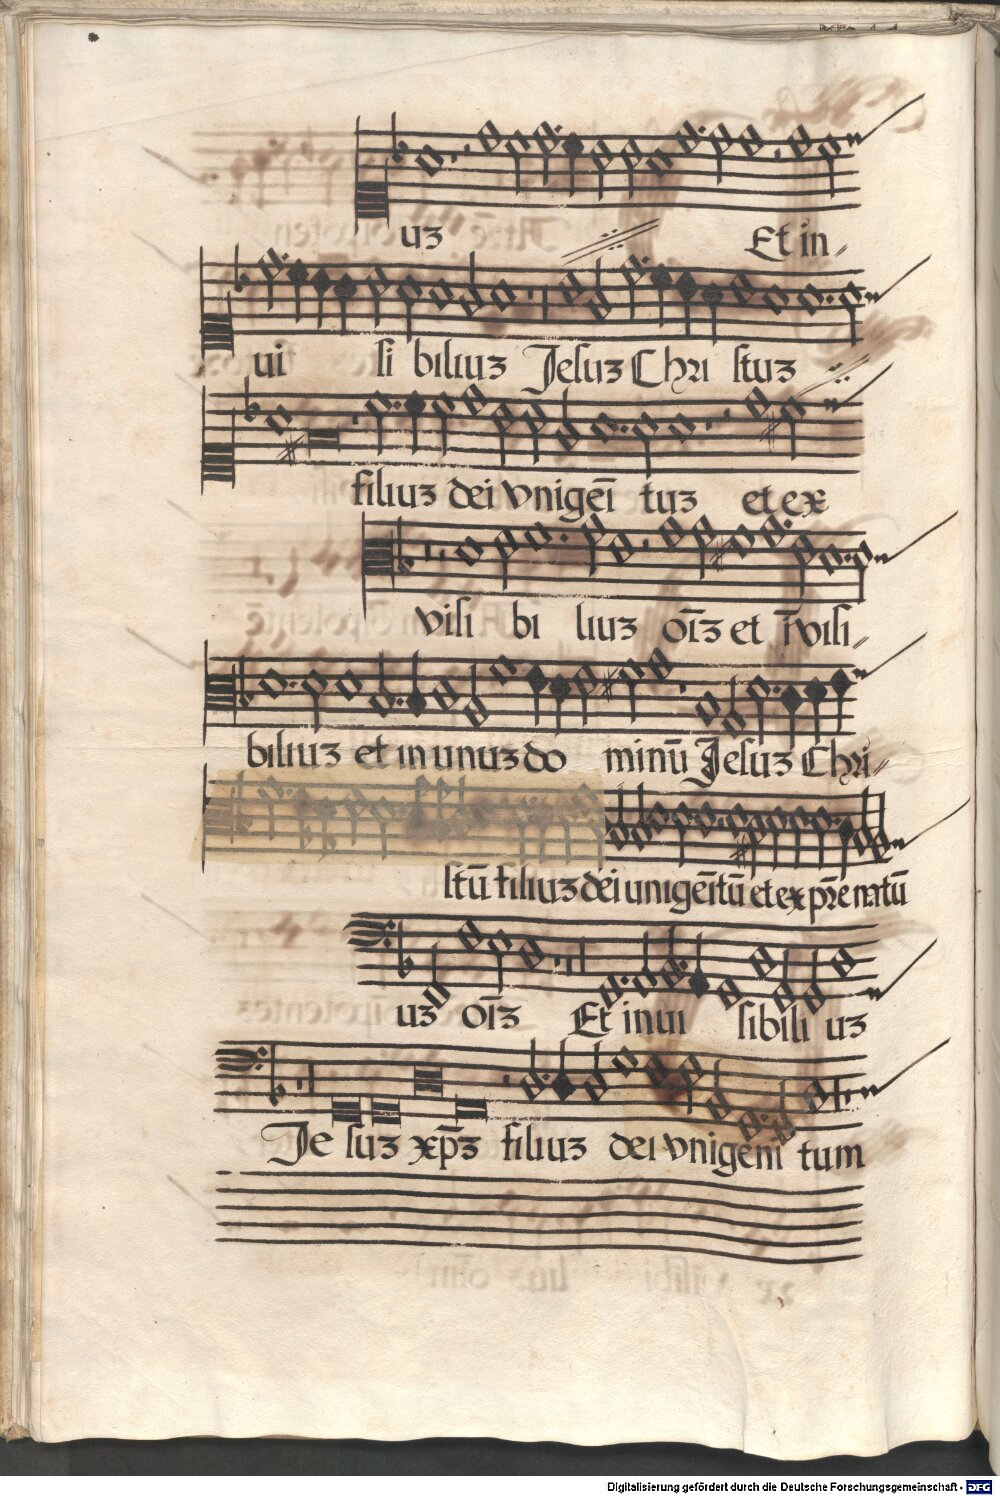 uz Et in
ui si biliuz Jesuz Chri stuz
filiuz dei vnigeī tuz et ex
visi bi liuz oı̄z et īvisi
biliuz et in unuz do minū Jesuz Chri
stū filiuz dei unigēıtū et ex pr̄e natū
uz oı̄z Et inui sibili uz
Je suz xp̄z filiuz dei vnigeni tum
Digitalisierung gefördert durch die Deutsche Forschungsgemeinschaft - DFG